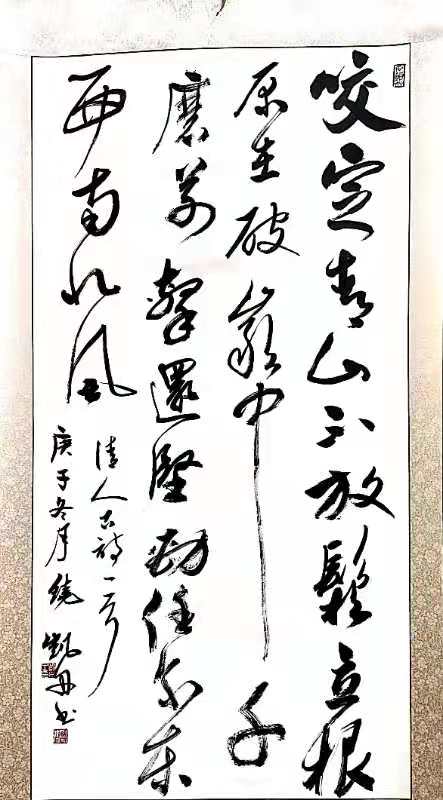 咬定青山不放鬆立根
原在破巖中千
磨萬擊還堅勁任尔東
西南北風
清人古詩一首
庚子冬月